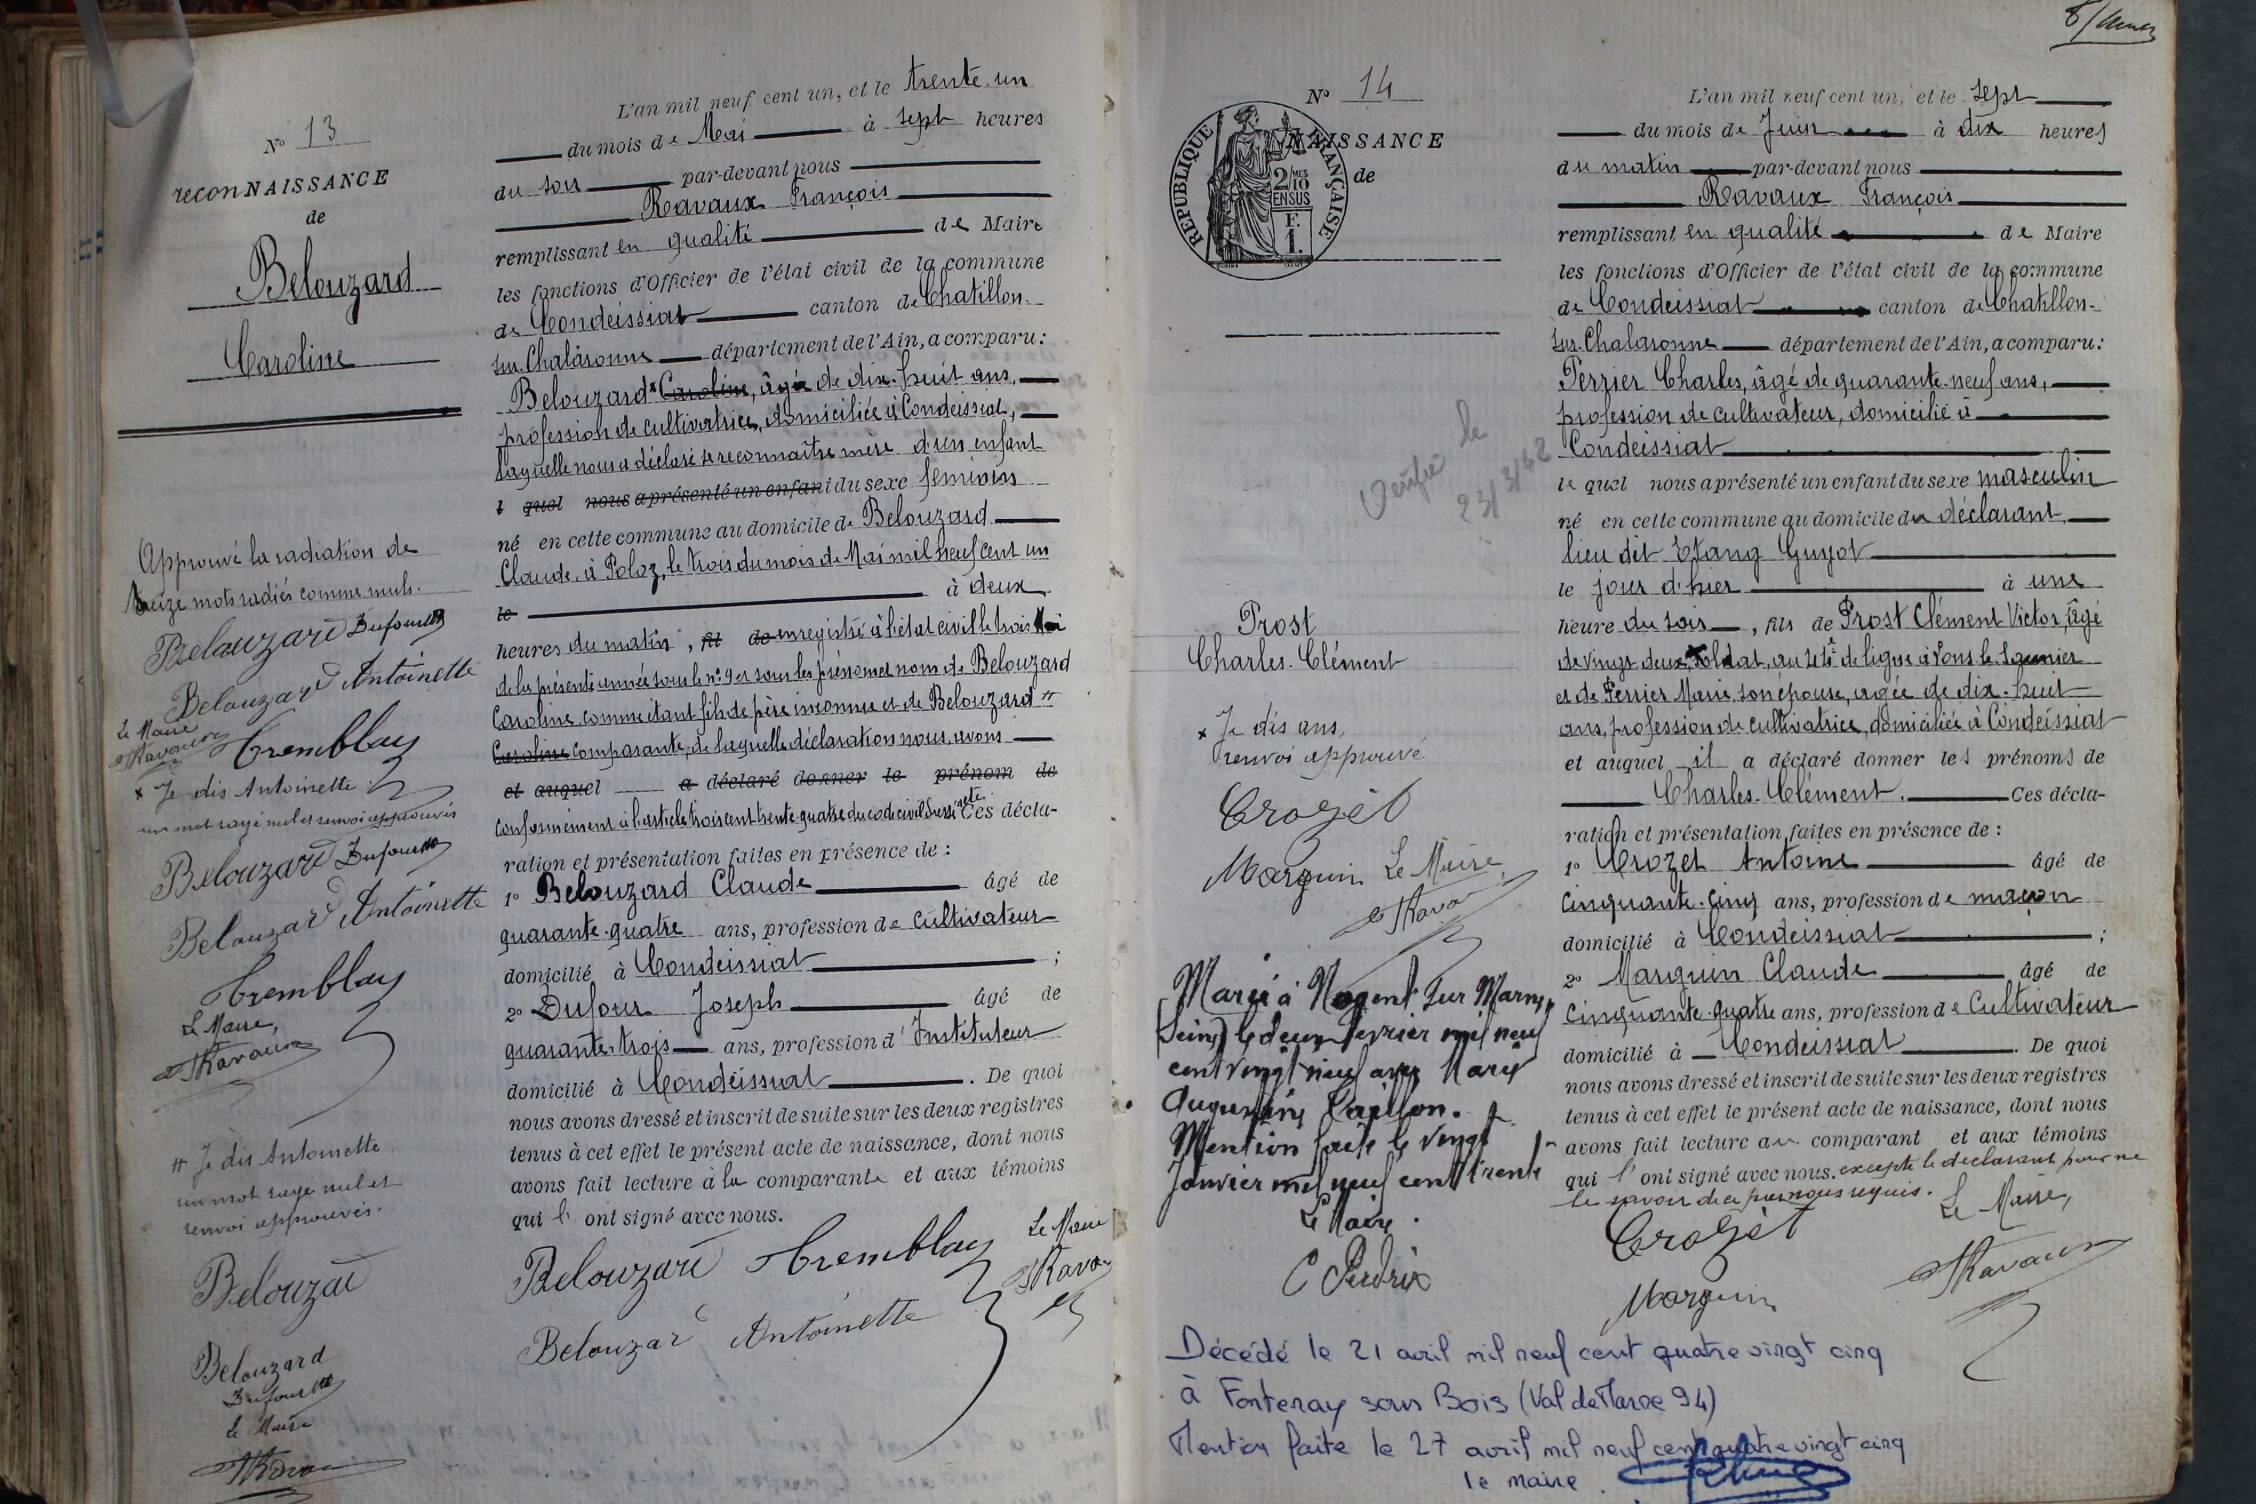 N° 13
reconNAISSANCE
de
Belouzard
Caroline
Approuvé la radiation de
seize mots radiés comme nuls.
Belouzard Dufour
Belouzard Antoinette
Le Maire
Ravaux Tremblay
x Je dis Antoinette
un mot rayé nul et renvoi approuvés
Belouzard Dufour
Belouzard Antoinette
Tremblay
Le Maire,
Ravaux
# Je dis Antoinette
un mot rayé nul et
renvoi approuvés.
Belouzard
Belouzard
Dufour
Le Maire
Ravaux
L'an mil neuf cent un, et le trente-un
du mois de Mai à sept heures
du soir par-devant nous
Ravaux François
remplissant en qualité de Maire
les fonctions d'Officier de l'état civil de la commune
de Condeissiat canton de Chatillon-
sur-Chalaronne département de l'Ain, a comparu:
Belouzard x Caroline, âgée de dix-huit ans,
profession de cultivatrice, domiciliée à Condeissiat,
laquelle nous a déclaré se reconnaître mère d'un enfant
l quel nous a présenté un enfant du sexe féminin
né en cette commune au domicile de Belouzard
Claude, à Poloz, le trois du mois de Mai mil neuf cent un
le à deux
heures du matin, fil de enregistré à l'état civil le trois Mai
de la présente année sous le n° 9 et sous les prénom et nom de Belouzard
Caroline comme étant fils de père inconnu et de Belouzard #
Caroline comparante, de laquelle déclaration nous avons
et auquel a déclaré donner le prénom de
conformément à l'article trois cent trente-quatre du code civil dressé acte Ces décla-
ration et présentation faites en présence de :
1° Belouzard Claude âgé de
quarante-quatre ans, profession de cultivateur
domicilié à Condeissiat ;
2° Dufour Joseph âgé de
quarante-trois ans, profession d'Instituteur
domicilié à Condeissiat. De quoi
nous avons dressé et inscrit de suite sur les deux registres
tenus à cet effet le présent acte de naissance, dont nous
avons fait lecture à la comparante et aux témoins
qui l' ont signé avec nous.
Belouzard Tremblay Le Maire
Ravaux
Belouzard Antoinette
N° 14
NAISSANCE
de
RÉPUBLIQUE FRANÇAISE
2/10 MES
EN SUS
F.
1.
Vérifié le
23/3/62
Prost
Charles-Clément
x Je dis ans,
renvoi approuvé
Crozet
Marguin Le Maire,
Ravaux
Marié à Nogent sur Marne
(Seine) le deux Février mil neuf
cent vingt neuf avec Marie
Augustine
Mention faite le vingt
Janvier mil neuf cent trente
Le Maire.
C Perdrix
L'an mil neuf cent un, et le sept
du mois de Juin à dix heures
du matin par-devant nous
Ravaux François
remplissant en qualité de Maire
les fonctions d'Officier de l'état civil de la commune
de Condeissiat canton de Chatillon-
sur-Chalaronne département de l'Ain, a comparu:
Perrier Charles, âgé de quarante-neuf ans,
profession de cultivateur, domicilié à
Condeissiat
le quel nous a présenté un enfant du sexe masculin
né en cette commune au domicile du déclarant,
lieu dit Etang Guyot
le jour d'hier à une
heure du soir, fils de Prost Clément Victor, âgé
de vingt deux x soldat, au 44e de ligne à Lons-le-Saunier
et de Perrier Marie, son épouse, âgée de dix-huit
ans, profession de cultivatrice, domiciliée à Condeissiat
et auquel il a déclaré donner les prénoms de
Charles-Clément. Ces décla-
ration et présentation faites en présence de :
1° Crozet Antoine âgé de
cinquante-cinq ans, profession de maçon
domicilié à Condeissiat ;
2° Marguin Claude âgé de
cinquante-quatre ans, profession de Cultivateur
domicilié à Condeissiat. De quoi
nous avons dressé et inscrit de suite sur les deux registres
tenus à cet effet le présent acte de naissance, dont nous
avons fait lecture au comparant et aux témoins
qui l' ont signé avec nous. excepté le déclarant pour ne
le savoir de ce par nous requis. Le Maire,
Crozet
Ravaux
Marguin
Décédé le 21 avril mil neuf cent quatre vingt cinq
à Fontenay sous Bois (Val de Marne 94)
Mention faite le 27 avril mil neuf cent quatre vingt cinq
le maire.